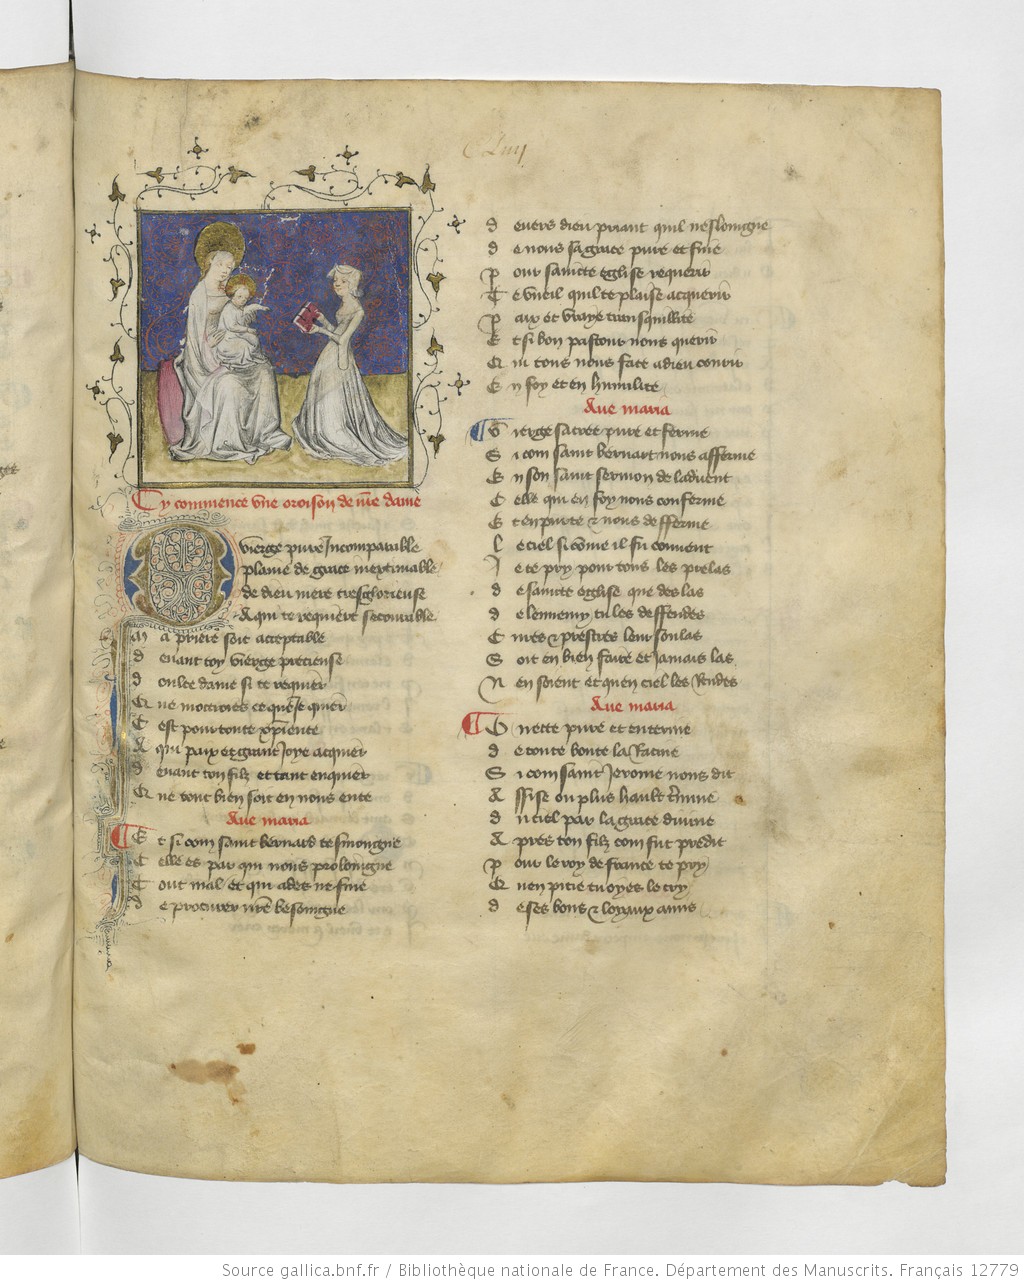 Cy commence vne oroison de nre dame
O vierge pure Incomparable
plaine de grace inextimable
de dieu mere tresglorieuse
A qui te requiert secourable
Ma priere soit acceptable
deuant toy vierge precieuse
doulce dame si te requier
Que mottroies ce que Je quier
Cest pour toute xpiente
A qui paix et grant Joye acquier
deuant ton filz et tant enquier
Que tout bien soit en nous ente
Aue maria
Et si com saint bernard tesmoingne
Celle es par qui nous prolonigne
Tout mal et qui ades ne fine
de procurer nre besoingne
deuers dieu priant quil neslonigne
de nous sa grace pure et fine
pour saincte eglise requerir
Te vueil quil te plaise acquerir
paix et vraye transquillite
Et si bon pastour nous querir
Qui tous nous face a dieu courir
En foy et en humilite
Aue maria
Vierge sacree pure et ferme
Si com saint bernart nous afferme
En son saint sermon de laduent
Celle qui en foy nous conferme
Et en purte & nous defferme
le ciel si cõme il fu couuent
Je te pry pour tous les prelas
de saincte eglise que des las
de lennemy tu les deffendes
Cures & prestres leur soulas
Soit en bien faire et Jamais las
Nen soient et quen ciel les Rendes
Aue maria
O nette pure et enterine
de toute bonte la Racine
Si com saint Jerome nous dit
Assise ou plus hault termine
du ciel par la grace diuine
Apres ton filz com fut predit
pour le roy de france te pry
Quen pitie tu oyes le cry
de ses bons & loyaux amis
Source gallica.bnf.fr / Bibliothèque nationale de France. Département des Manuscrits. Français 12779